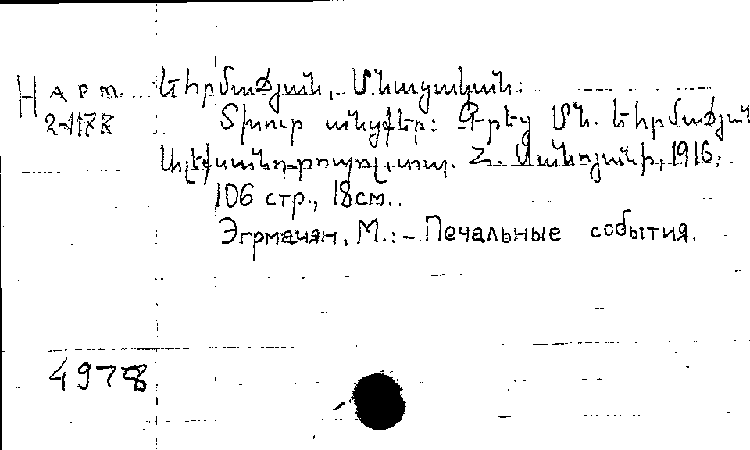 Н арт. Եհրմաճյան, Մնացական:
2-1178 Տխուր անցքեր: Գրեց Մն. Եհրմաճյան
Ալեքսանդրուպոլ, տպ. Հ. Սանոյանի, 1916,
106 стр., 18см..
Эгрмачян, М.:- Печальные события.
4978